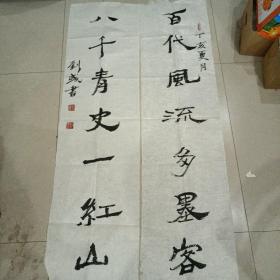 丁亥夏月
百代風流多墨客
八千青史一紅山
劉盛書